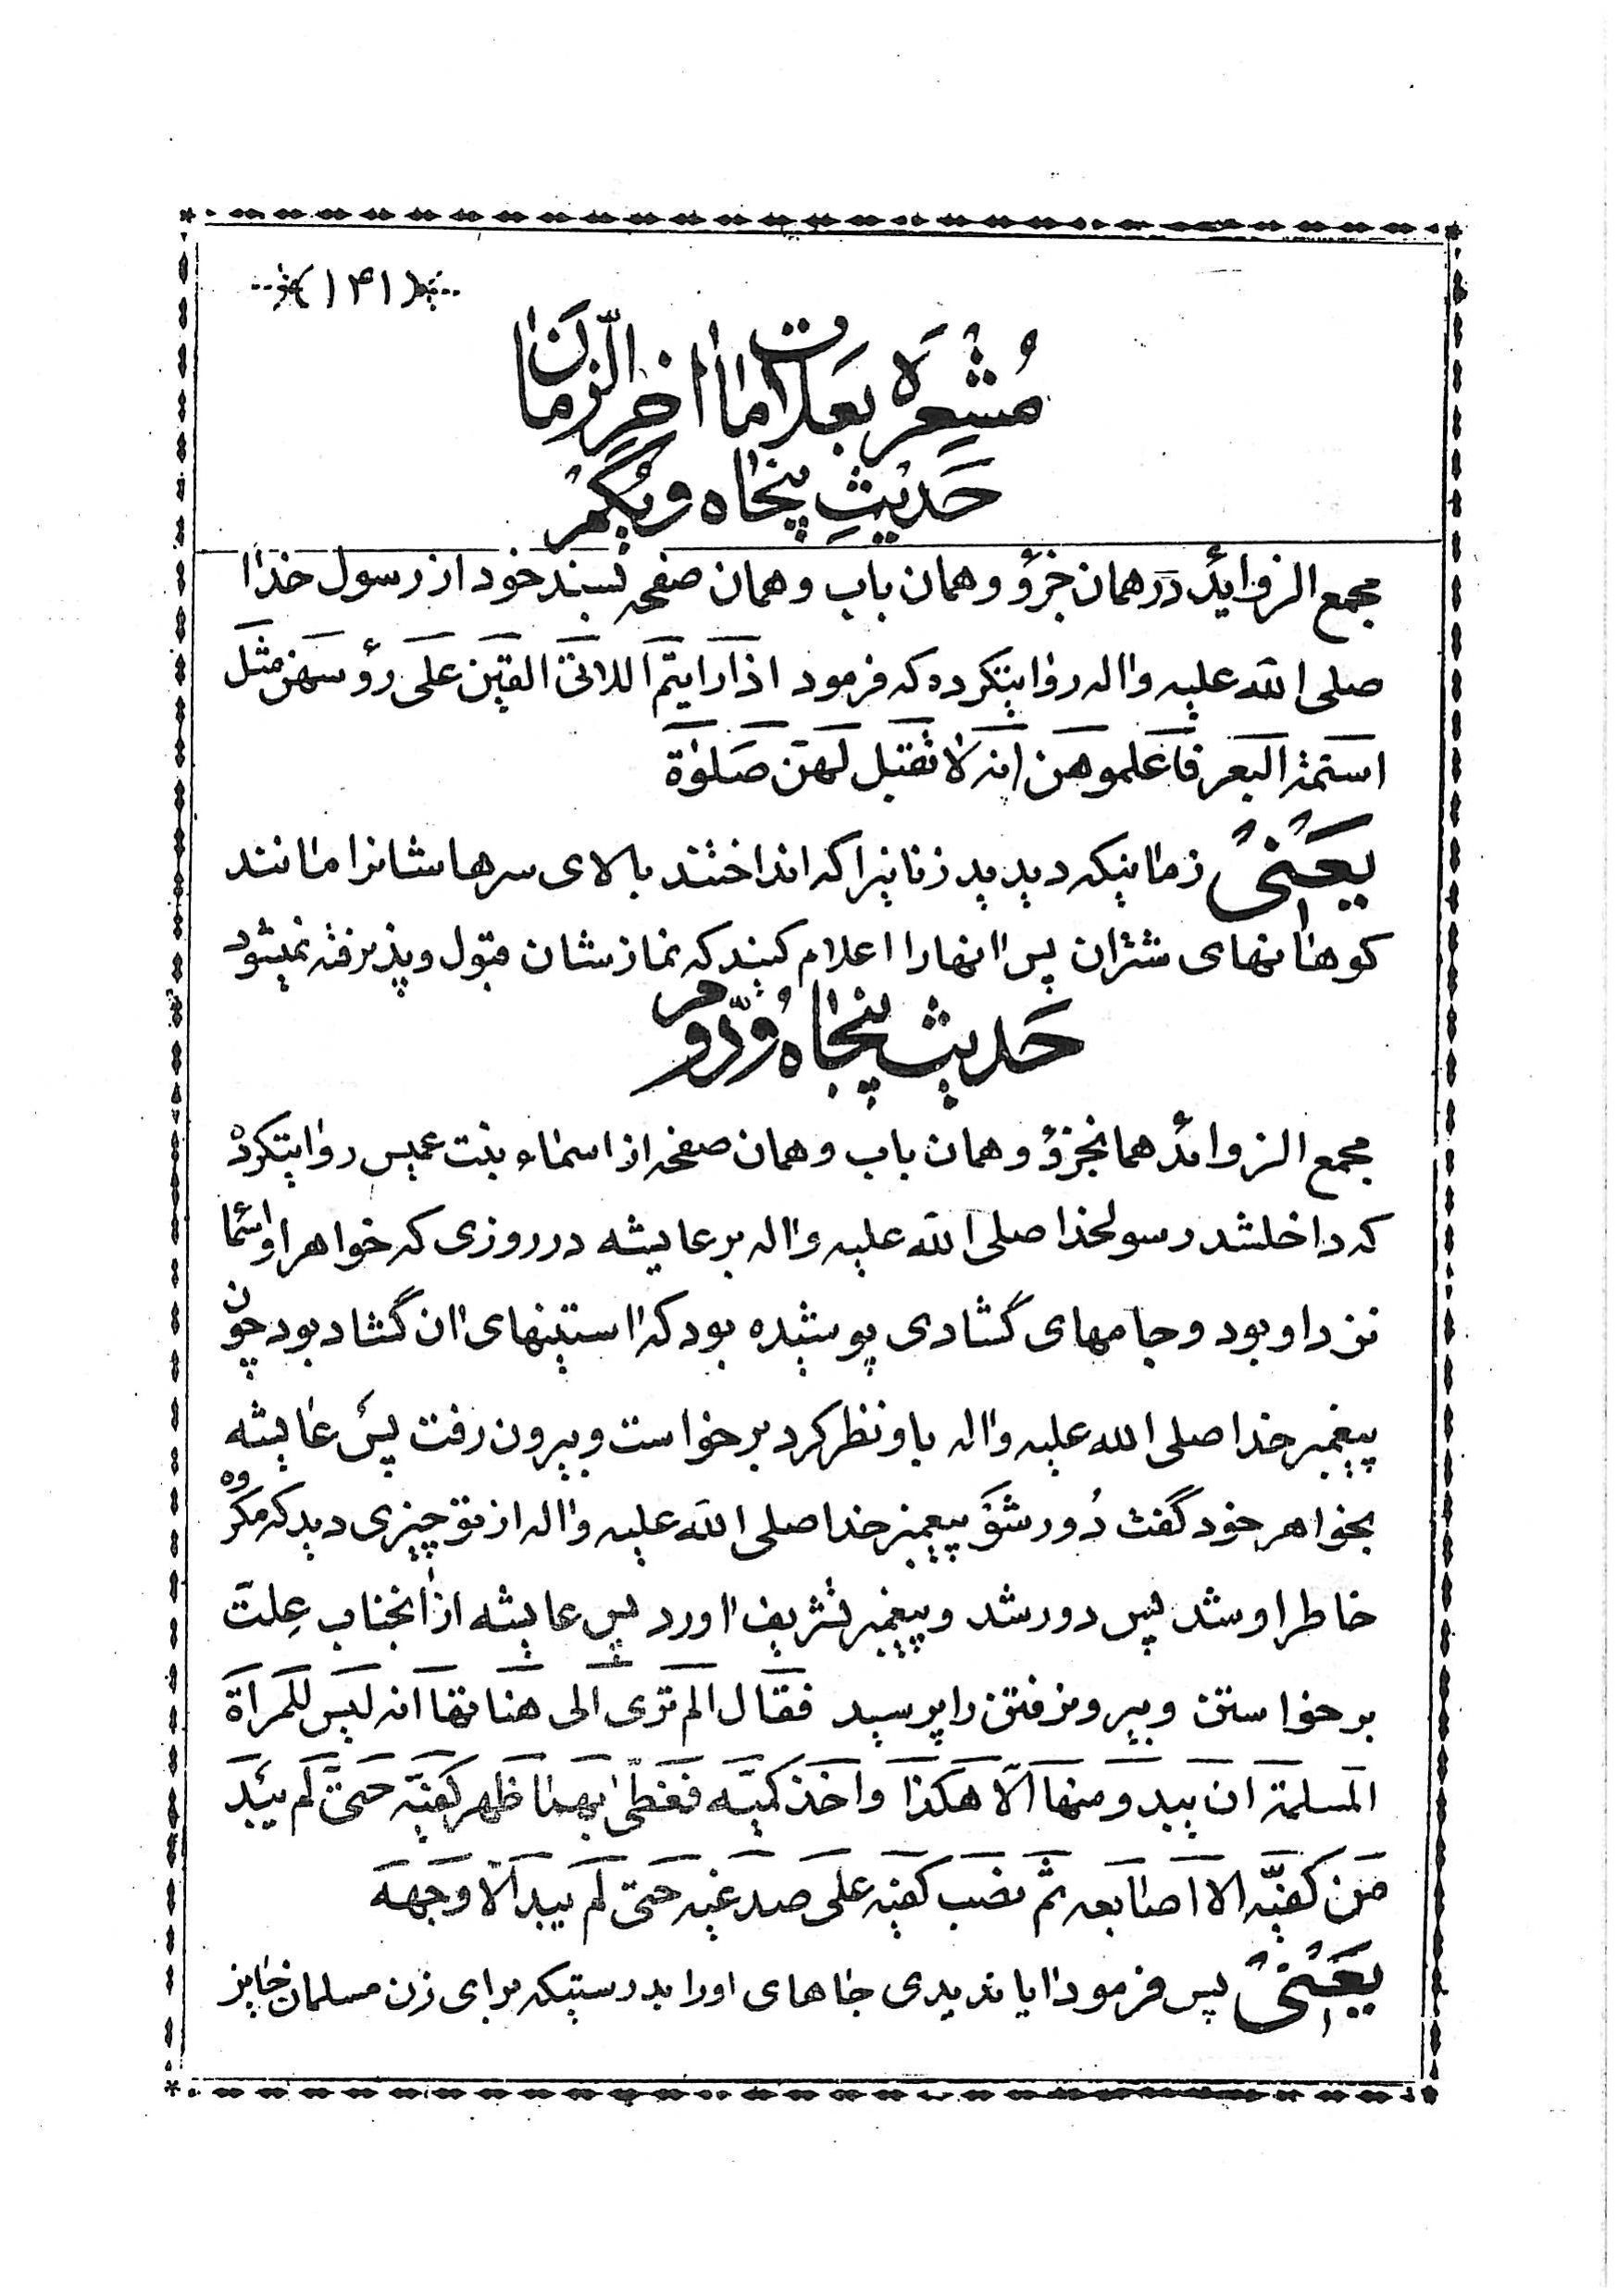 (۱۴۱)
مُشْعِرَه بعَلاماتِ آخِرُ الزَّمان
حَدیثِ پنجاه و یکُم
مجمع الزوائد در همان جزؤ و همان باب و همان صفحه بسند خود از رسول خدا
صلی الله علیه و اله روایتکرده که فرمود اذا رایتم اللاتی القین علی رؤسهن مثل
اسنمة البعر فاعلموهن انه لا تقبل لهن صلوة
یعنی زمانیکه دیدید زنانیرا که انداختند بالای سرهاشانرا مانند
کوهانهای شتران پس آنهارا اعلام کنید که نمازشان قبول و پذیرفته نمیشود
حَدیث پنجاه و دوم
مجمع الزوائد همانجزؤ و همان باب و همان صفحه از اسماء بنت عمیس روایتکرده
که داخلشد رسولخدا صلی الله علیه و اله بر عایشه در روزی که خواهر او اسماء
نزد او بود و جامهای گشادی پوشیده بود که آستینهای آن گشاد بود چون
پیغمبر خدا صلی الله علیه و اله باو نظر کرد برخواست و بیرون رفت پس عایشه
بخواهر خود گفت دُور شو پیغمبر خدا صلی الله علیه و اله از تو چیزی دید که مکروه
خاطر او شد پس دور شد و پیغمبر تشریف آورد پس عایشه از آنجناب عِلت
برخواستن و بیرونرفتن را پرسید فقال الم تری الی هناتها انه لیس للمراة
المسلمة ان یبدو منها الا هکذا و اخذ کمیه فغطی بهما ظهر کفیه حتی لم یبد
من کفیه الا اصابعه ثم نصب کفیه علی صدغیه حتی لم یبد الا وجهه
یعنی پس فرمود آیا ندیدی جاهای اورا بدرستیکه برای زن مسلمان جایز